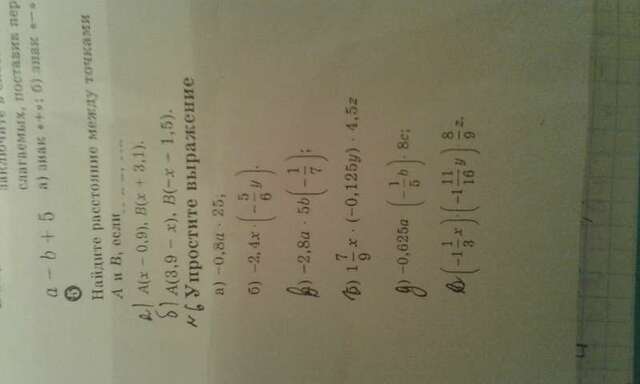 слагаемых, поставив пер
a − b + 5 а) знак «+»; б) знак «−»
5
Найдите расстояние между точками
A и B, если
а) A(x − 0,9), B(x + 3,1).
б) A(3,9 − x), B(−x − 1,5).
№6 Упростите выражение
а) −0,8a · 25;
б) −2,4x · (−5/6 y).
в) −2,8a · 5b(−1/7);
1 7/9 x · (−0,125y) · 4,5z
д) −0,625a (−1/5 b) · 8c;
е) (−1 1/3 x) · (−1 11/16 y) 8/9 z.